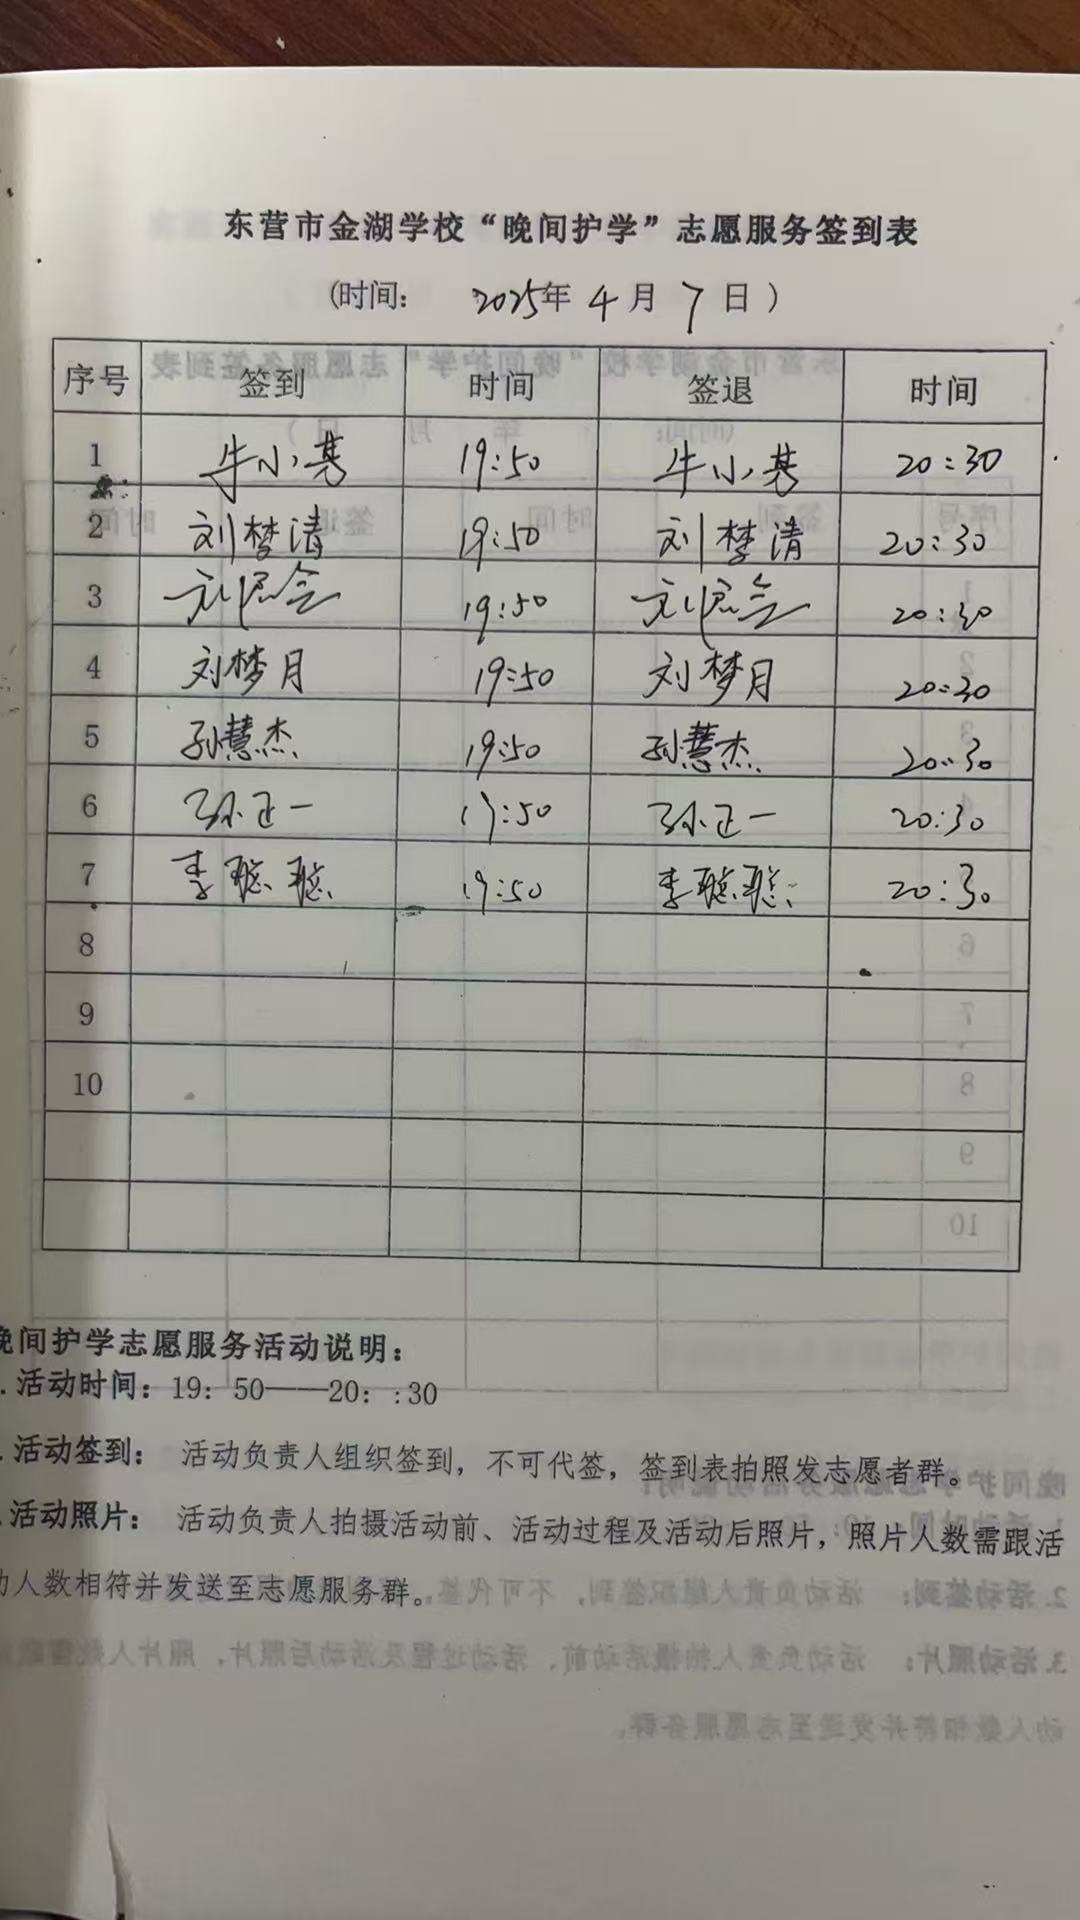 东营市金湖学校“晚间护学”志愿服务签到表
(时间: 2025年 4 月 7 日)
序号 签到 时间 签退 时间
1 牛小 19:50 牛小 20:30
2 刘梦清 19:50 刘梦清 20:30
3 刘 19:50 刘 20:30
4 刘梦月 19:50 刘梦月 20:30
5 孙慧杰 19:50 孙慧杰 20:30
6 孙正一 19:50 孙正一 20:30
7 李聪聪 19:50 李聪聪 20:30
8
9
10
晚间护学志愿服务活动说明:
.活动时间: 19: 50——20: :30
.活动签到: 活动负责人组织签到, 不可代签, 签到表拍照发志愿者群。
.活动照片: 活动负责人拍摄活动前、活动过程及活动后照片, 照片人数需跟活
动人数相符并发送至志愿服务群。